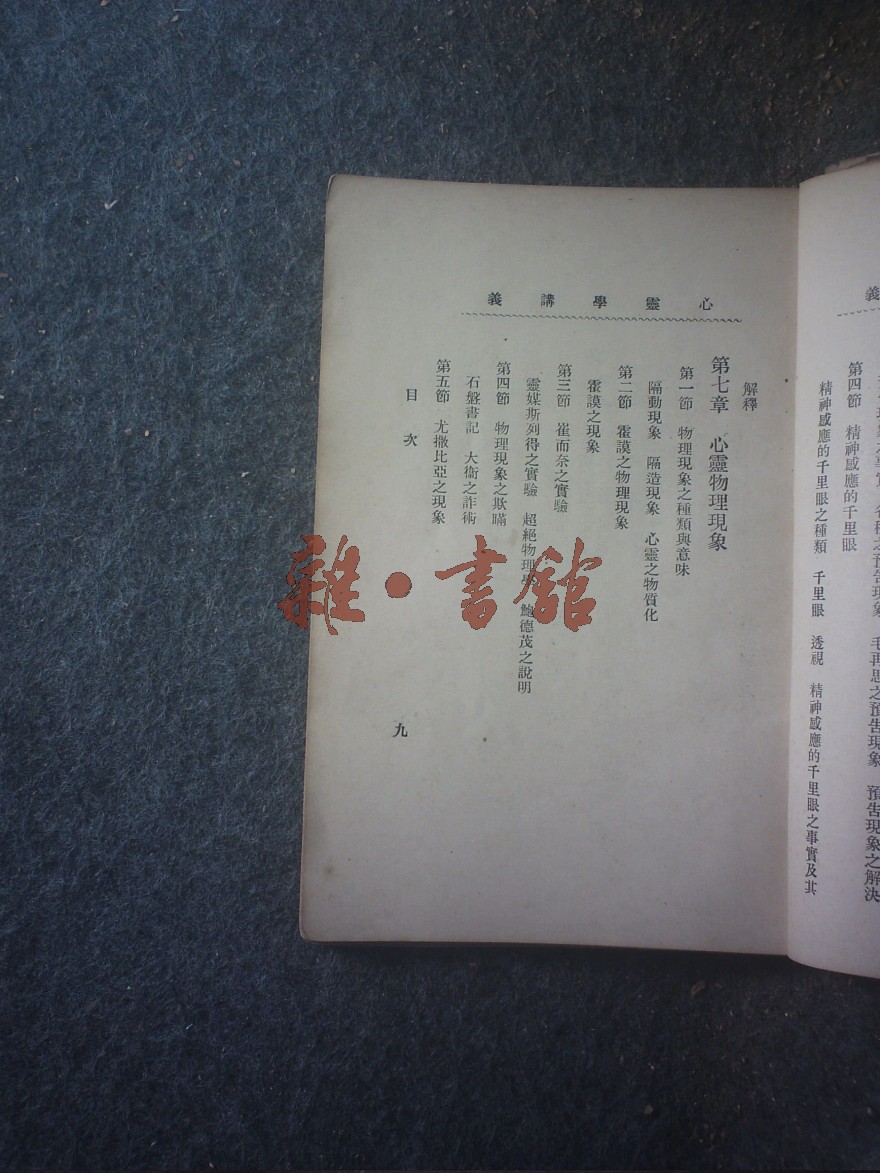 義
各種之預告現象　毛再思之預告現象　預告現象之解決
第四節　精神感應的千里眼
精神感應的千里眼之種類　千里眼　透視　精神感應的千里眼之事實及其
心靈學講義
解釋
第七章　心靈物理現象
第一節　物理現象之種類與意味
隔動現象　隔造現象　心靈之物質化
第二節　霍謨之物理現象
霍謨之現象
第三節　崔而奈之實驗
靈媒斯列得之實驗　超絕物理學　鮑德茂之說明
第四節　物理現象之欺瞞
石盤書記　大衞之詐術
第五節　尤撒比亞之現象
目次
九
雜·書館